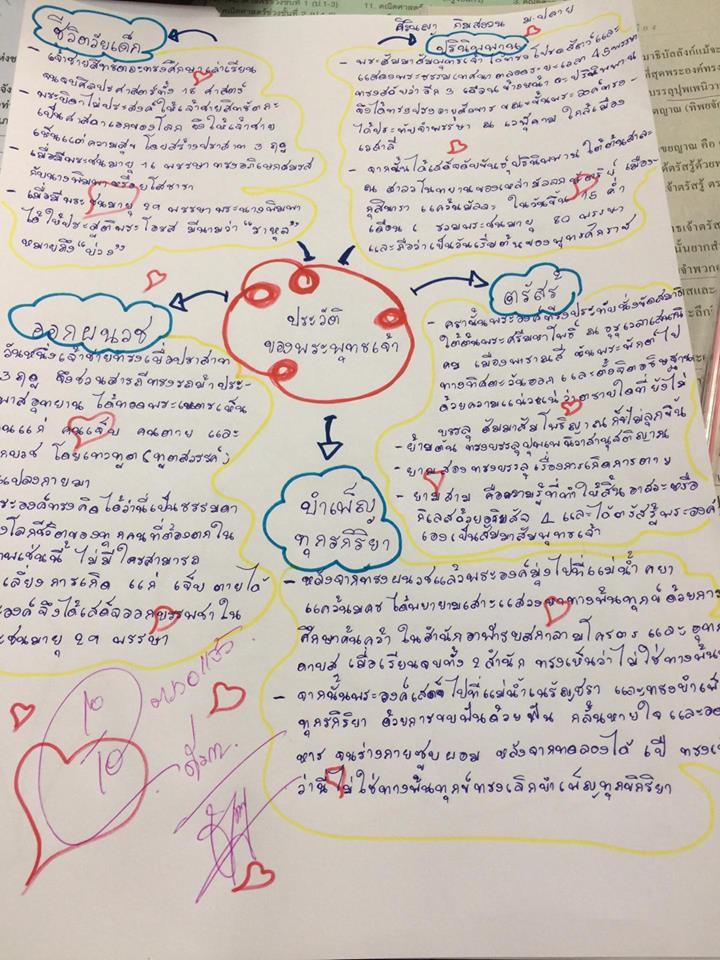 ศิรินยา กิมสวน ม.ปลาย
ชีวิตวัยเด็ก
- เจ้าชายสิทธัตถะทรงศึกษาเล่าเรียน
จนจบศิลปศาสตร์ทั้ง 18 ศาสตร์
- พระบิดาไม่ประสงค์ให้เจ้าชายสิทธัตถะ
เป็นศาสดาเอกของโลก จึงให้เจ้าชาย
เห็นแต่ความสุข โดยสร้างปราสาท 3 ฤดู
- เมื่อมีพระชนมายุ 16 พรรษา ทรงอภิเษกสมรส
กับนางพิมพาหรือยโสธารา
- เมื่อมีพระชนมายุ 29 พรรษา พระนางพิมพา
ได้ให้ประสูติพระโอรส มีนามว่า "ราหุล"
หมายถึง "บ่วง"
ปรินิพพาน
- พระสัมมาสัมพุทธเจ้าได้ทรงโปรดสัตว์และ
แสดงพระธรรมเทศนาตลอดระยะเวลา 45 พรรษา
ทรงสดับว่าอีก 3 เดือนข้างหน้าจะปรินิพพาน
จึงได้ทรงปรงอายุสังขาร ขณะนั้นพระองค์ทรง
ได้ประทับจำพรรษา ณ เวฬุคาม ใกล้เมือง
เวสาลี
- จากนั้นได้เสด็จดับขันธุ์ปรินิพพาน ใต้ต้นสาละ
ณ สาลวโนทยานของเหล่ามัลลกษัตริย์ เมือง
กุสินารา แคว้นมัลละ ในวันขึ้น 15 ค่ำ
เดือน 6 รวมพระชนมายุ 80 พรรษา
และถือว่าเป็นวันเริ่มต้นของพุทธศักราช
ประวัติ
ของพระพุทธเจ้า
ออกผนวช
วันหนึ่งเจ้าชายทรงเบื่อปราสาท
3 ฤดู จึงชวนสารถีทรงรถม้าประ-
พาสอุทยาน ได้ทอดพระเนตรเห็น
นแก่ คนเจ็บ คนตาย และ
กบวช โดยเทวทูต (ทูตสวรรค์)
แปลงกายมา
ระองค์ทรงคิดได้ว่านี่เป็นธรรมดา
งโลกชีวิตของทุกคนที่ต้องตกใน
าพเช่นนี้ ไม่มีใครสามารถ
เลี่ยงการเกิด แก่ เจ็บ ตายได้
องค์จึงได้เสด็จออกบรรพชาใน
ะชนมายุ 29 พรรษา
ตรัสรู้
- ครานั้นพระองค์ทรงประทับนั่งขัดสมาธิ
ใต้ต้นพระศรีมหาโพธิ์ ณ อุรุเวลาเสนานิ
คม เมืองพาราณสี หันพระพักต์ไป
ทางทิศตะวันออก และตั้งจิตอธิษฐาน
ด้วยความแน่วแน่ว่าตราบใดที่ยังไม่
บรรลุ สัมมาสัมโพธิญาณ ก็จะไม่ลุกขึ้น
- ยามต้น ทรงบรรลุปุพเพนิวาสานุสติญาณ
- ยามสองทรงบรรลุเรื่องการเกิดการตาย
- ยามสาม คือความรู้ที่ทำให้สิ้นอาสวะหรือ
กิเลสด้วยอริยสัจ 4 และได้ตรัสรู้พระองค์
เองเป็นสัมมาสัมพุทธเจ้า
บำเพ็ญ
ทุกรกิริยา
- หลังจากทรงผนวชแล้วพระองค์มุ่งไปที่แม่น้ำคยา
แคว้นมคธ ได้พยายามเสาะแสวงหนทางพ้นทุกข์ ด้วยการ
ศึกษาค้นคว้า ในสำนักอาฬารดาบสกาลามโคตร และอุทก
ดาบส เมื่อเรียนจบทั้ง 2 สำนัก ทรงเห็นว่าไม่ใช่ทางพ้น
- จากนั้นพระองค์เสด็จไปที่แม่น้ำเนรัญชรา และทรงบำเพ็
ทุกรกิริยา ด้วยการขบฟันด้วยฟัน กลั้นหายใจ และอด
หาร จนร่างกายซูบผอม หลังจากทดลองได้ 6ปี ทรงเ
ว่านี่ไม่ใช่ทางพ้นทุกข์ทรงเลิกบำเพ็ญทุกรกิริยา
10
10
ตรวจแล้ว